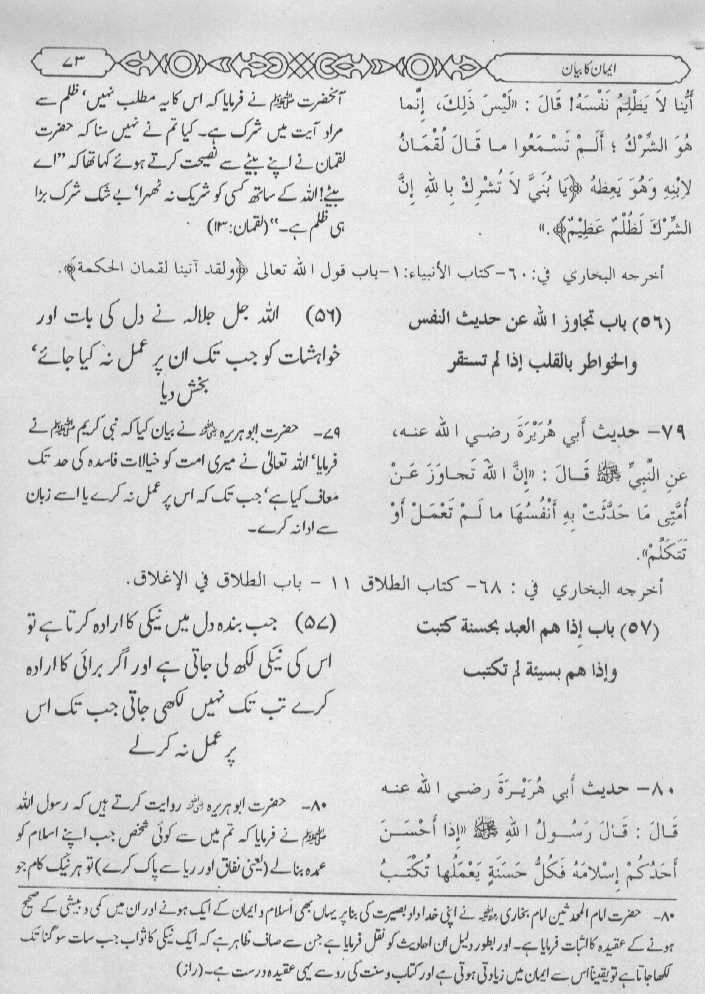 ایمان کا بیان
۷۳
أَيُّنا لاَ يَظْلِمُ نَفْسَهُ! قَالَ : «لَيْسَ ذَلِكَ، إِنَّما
هُوَ الشِّرْكُ ؛ أَلَمْ تَسْمَعُوا ما قَالَ لُقْمَانُ
لِابْنِهِ وَهُوَ يَعِظُهُ ﴿يَا بُنَيَّ لاَ تُشْرِكْ بِاللهِ إِنَّ
الشِّرْكَ لَظُلْمٌ عَظِيْمٌ﴾.»
آنحضرت ﷺ نے فرمایا کہ اس کا یہ مطلب نہیں‘ ظلم سے
مراد آیت میں شرک ہے۔ کیا تم نے نہیں سنا کہ حضرت
لقمان نے اپنے بیٹے سے نصیحت کرتے ہوئے کہا تھا کہ ”اے
بیٹے! اللہ کے ساتھ کسی کو شریک نہ ٹھہرا‘ بے شک شرک بڑا
ہی ظلم ہے۔“ (لقمان: ۱۳)
أخرجه البخاري في: ٦٠- كتاب الأنبياء: ١- باب قول الله تعالى ﴿ولقد آتينا لقمان الحكمة﴾.
(۵۶) باب تجاوز الله عن حديث النفس
والخواطر بالقلب إذا لم تستقر
(۵۶) اللہ جل جلالہ نے دل کی بات اور
خواہشات کو جب تک ان پر عمل نہ کیا جائے‘
بخش دیا
۷۹- حديث أَبي هُرَيْرَةَ رضي الله عنه،
عَنِ النَّبِيِّ ﷺ قَالَ : «إِنَّ اللهَ تَجاوَزَ عَنْ
أُمَّتِي مَا حَدَّثَتْ بِهِ أَنْفُسُهَا ما لَمْ تَعْمَلْ أَوْ
تَتَكَلَّمْ».
۷۹۔ حضرت ابوہریرہ رضی اللہ عنہ نے بیان کیا کہ نبی کریم ﷺ نے
فرمایا‘ اللہ تعالیٰ نے میری امت کو خیالات فاسدہ کی حد تک
معاف کیا ہے‘ جب تک کہ اس پر عمل نہ کرے یا اسے زبان
سے ادا نہ کرے۔
أخرجه البخاري في : ٦٨- كتاب الطلاق ١١ - باب الطلاق في الإغلاق.
(۵۷) باب إذا هم العبد بحسنة كتبت
وإذا هم بسيئة لم تكتب
(۵۷) جب بندہ دل میں نیکی کا ارادہ کرتا ہے تو
اس کی نیکی لکھ لی جاتی ہے اور اگر برائی کا ارادہ
کرے تب تک نہیں لکھی جاتی جب تک اس
پر عمل نہ کرلے
۸۰- حديث أَبي هُرَيْرَةَ رضي الله عنه
قَالَ : قَالَ رَسُولُ اللهِ ﷺ «إِذا أَحْسَنَ
أَحَدُكُمْ إِسْلاَمَهُ فَكُلُّ حَسَنَةٍ يَعْمَلُها تُكْتَبُ
۸۰۔ حضرت ابوہریرہ رضی اللہ عنہ روایت کرتے ہیں کہ رسول اللہ
ﷺ نے فرمایا کہ تم میں سے کوئی شخص جب اپنے اسلام کو
عمدہ بنالے (یعنی نفاق اور ریا سے پاک کرے) تو ہر نیک کام جو
۸۰۔ حضرت امام المحدثین امام بخاری رحمہ اللہ نے اپنی خداداد بصیرت کی بنا پر یہاں بھی اسلام و ایمان کے ایک ہونے اور ان میں کمی و بیشی کے صحیح
ہونے کے عقیدہ کا اثبات فرمایا ہے۔ اور بطور دلیل ان احادیث کو نقل فرمایا ہے جن سے صاف ظاہر ہے کہ ایک نیکی کا ثواب جب سات سو گنا تک
لکھا جاتا ہے تو یقیناً اس سے ایمان میں زیادتی ہوتی ہے اور کتاب و سنت کی رو سے یہی عقیدہ درست ہے۔ (راز)